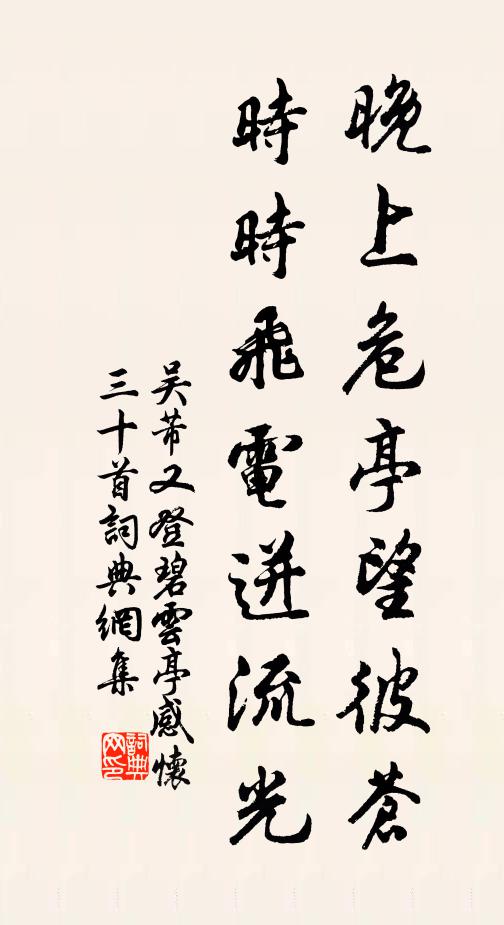 晚上危亭望彼蒼
時時飛電迸流光
吴芾又登碧雲亭感懷
三十首詞典網集
詞典
网印